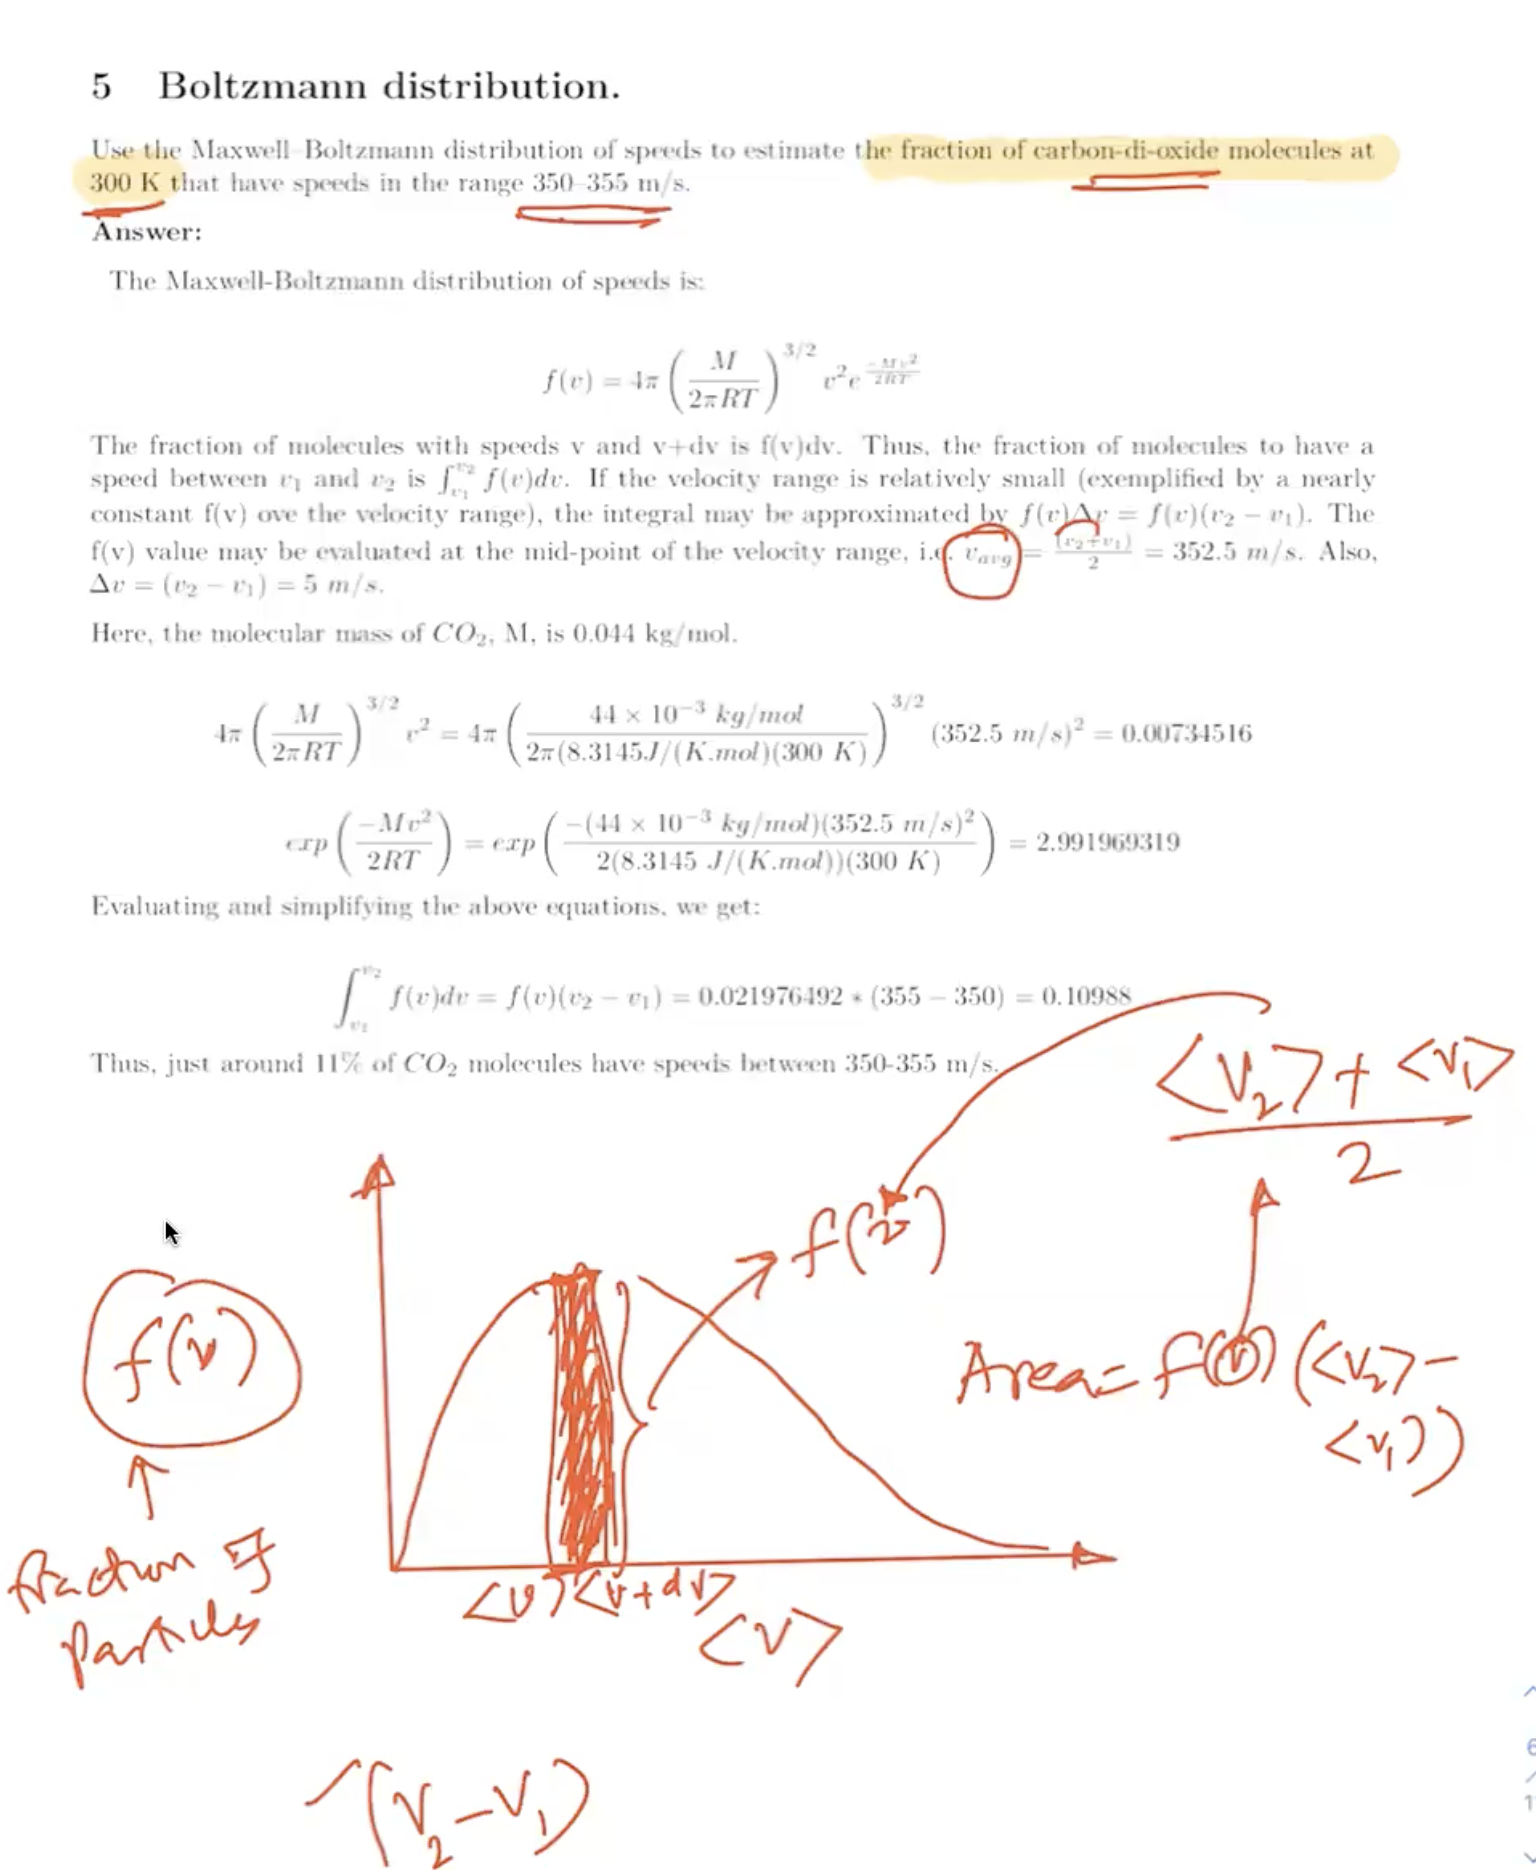 5 Boltzmann distribution.
Use the Maxwell Boltzmann distribution of speeds to estimate the fraction of carbon-di-oxide molecules at
300 K that have speeds in the range 350–355 m/s.
Answer:
The Maxwell-Boltzmann distribution of speeds is:
f(v) = 4π (M / 2πRT)^{3/2} v² e^{-Mv²/2RT}
The fraction of molecules with speeds v and v+dv is f(v)dv. Thus, the fraction of molecules to have a
speed between v₁ and v₂ is ∫_{v₁}^{v₂} f(v)dv. If the velocity range is relatively small (exemplified by a nearly
constant f(v) ove the velocity range), the integral may be approximated by f(v)Δv = f(v)(v₂ − v₁). The
f(v) value may be evaluated at the mid-point of the velocity range, i.e. v_{avg} = (v₂+v₁)/2 = 352.5 m/s. Also,
Δv = (v₂ − v₁) = 5 m/s.
Here, the molecular mass of CO₂, M, is 0.044 kg/mol.
4π (M / 2πRT)^{3/2} v² = 4π (44 × 10⁻³ kg/mol / 2π(8.3145J/(K.mol)(300 K))^{3/2} (352.5 m/s)² = 0.00734516
exp (−Mv² / 2RT) = exp (−(44 × 10⁻³ kg/mol)(352.5 m/s)² / 2(8.3145 J/(K.mol))(300 K)) = 2.991969319
Evaluating and simplifying the above equations, we get:
∫_{v₁}^{v₂} f(v)dv = f(v)(v₂ − v₁) = 0.021976492 * (355 − 350) = 0.10988
Thus, just around 11% of CO₂ molecules have speeds between 350-355 m/s.
<V₂> + <V₁>
2
f(v)
f(v)
Area = f(v) (<V₂> −
<V₁>)
fraction of
Particles
<v> <v+dv>
<v>
(V₂−V₁)